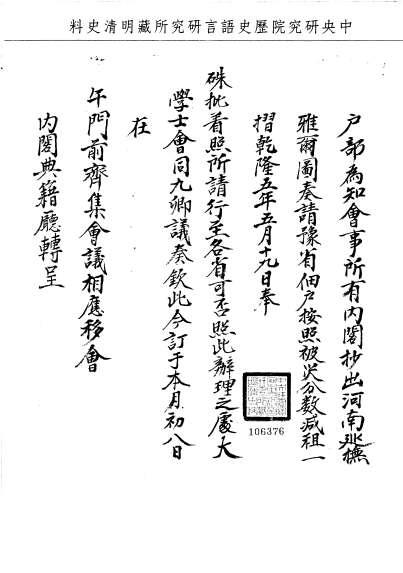 中央研究院歷史語言研究所藏明清史料
戶部為知會事所有內閣抄出河南巡撫
雅爾圖奏請豫省佃戶按照被災分數減租一
摺乾隆五年五月十九日奉
硃批着照所請行至各省可否照此辦理之處大
學士會同九卿議奏欽此今訂于本月初八日
在
午門前齊集會議相應移會
內閣典籍廳轉呈
106376